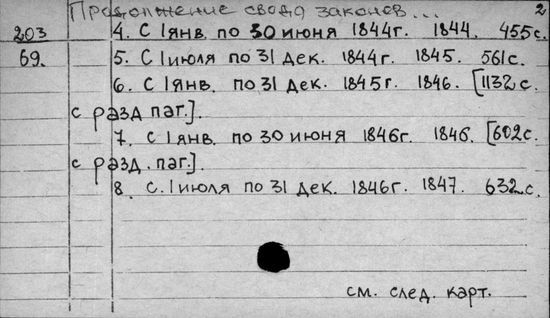 Продолжение свода законов... 2
203 4. С 1 янв. по 30 июня 1844г. 1844. 455 с.
69. 5. С 1 июля по 31 дек. 1844г. 1845. 561 с.
6. С 1 янв. по 31 дек. 1845г. 1846. [1132 с.
с разд. паг.].
7. С 1 янв. по 30 июня 1846г. 1846. [602 с.
с разд. паг.].
8. С. 1 июля по 31 дек. 1846г. 1847. 632 с.
см. след. карт.